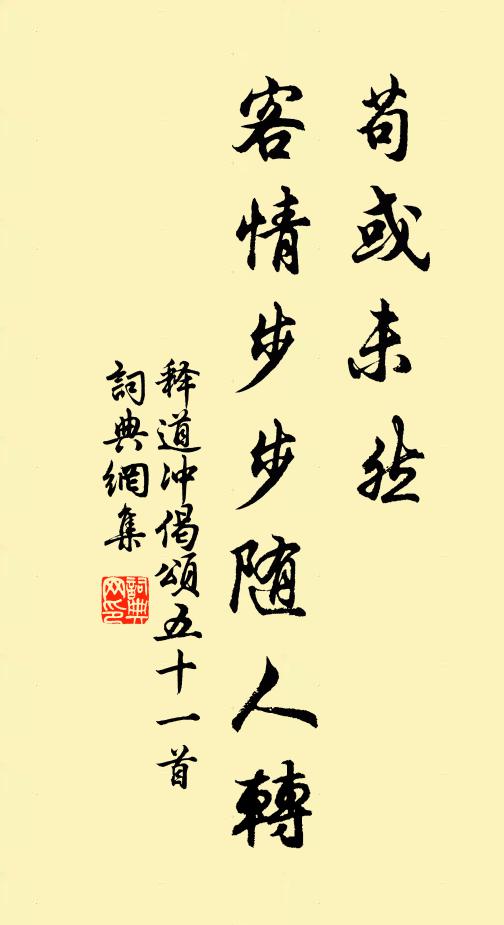 苟或未然
客情步步随人轉
释道冲偈頌五十一首
詞典網集
詞典网印